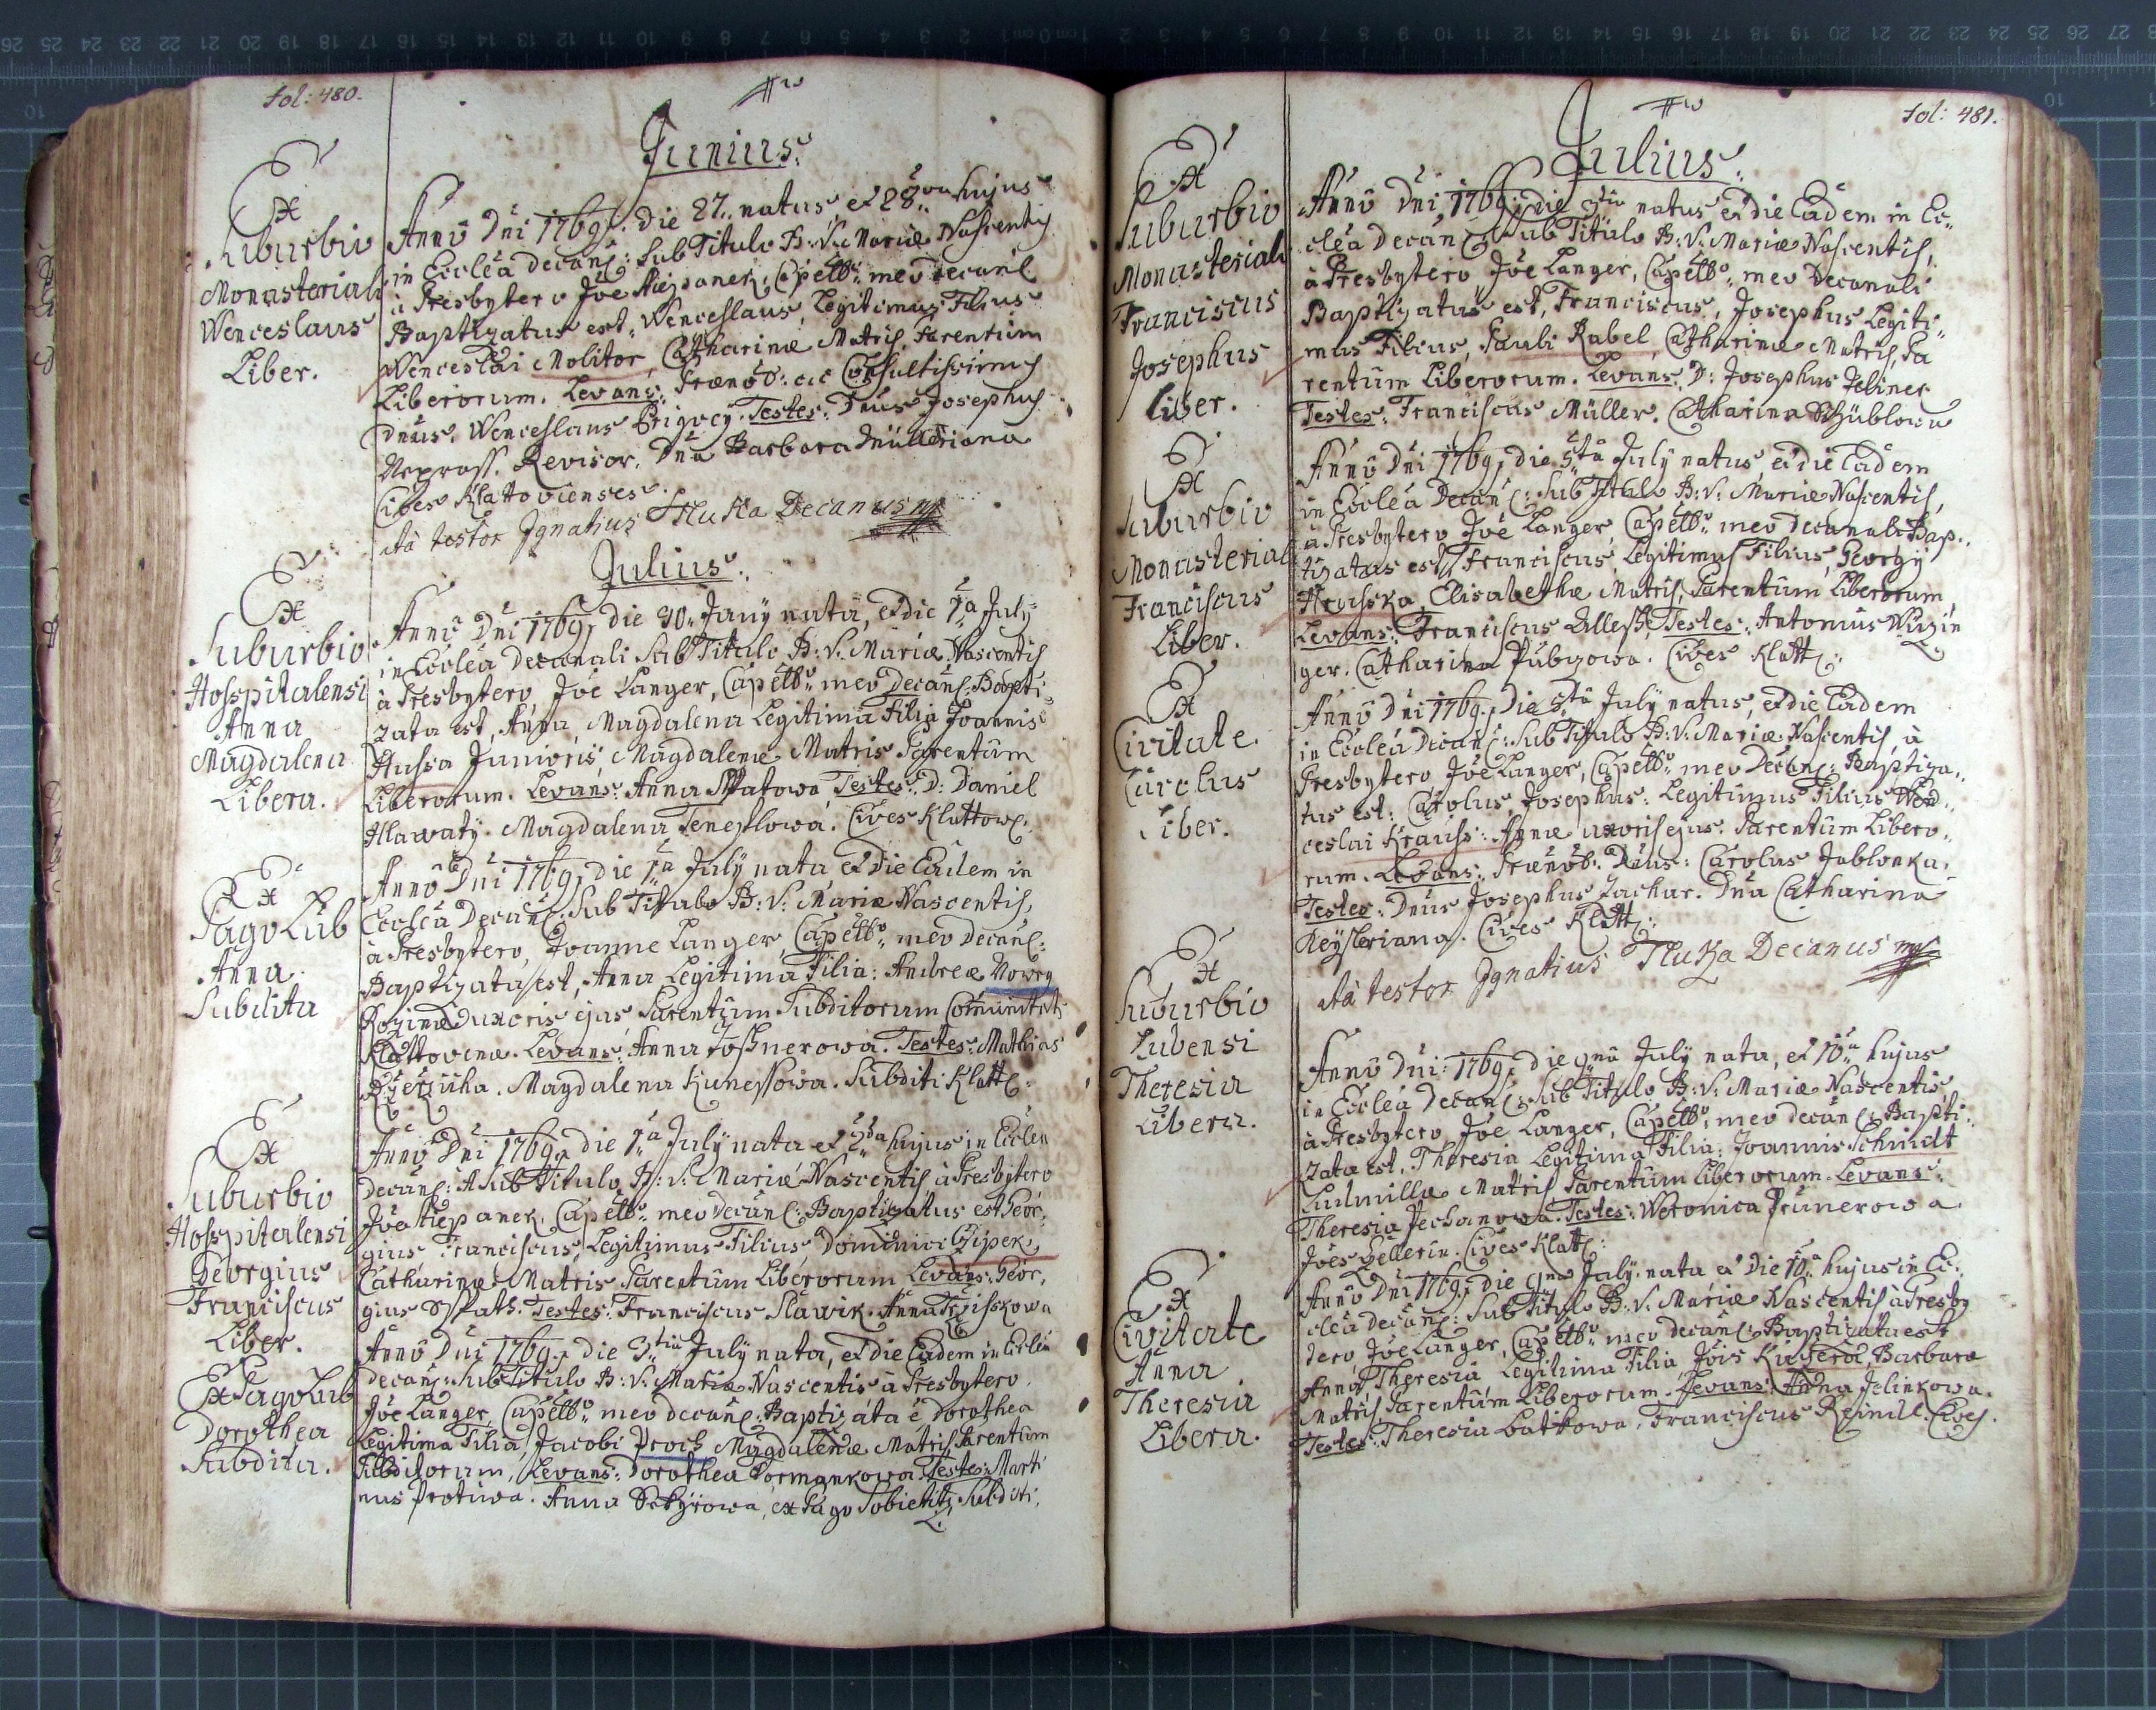 fol: 480.
Junius.
Ex
Suburbio
Monasteriali
Wenceslaus
Liber.
Anno Dni 1769. die 27. natus, et 28va hujus
in Ecclea decanl: Sub Titulo B: V: Mariæ Nascentis
à Presbytero Joe Stiepanek, Capellō meo decanl
Baptizatus est, Wenceslaus, Legitimus Filius
Wenceslai Molitor, Catharinæ Matris, Parentum
Liberorum. Levans: Prænob: ac Consultissimus
Dnus, Wenceslaus Testes: Dnus Josephus
Revisor. Dna Barbara Mülleriana
Cives Klatovienses.
Ità testor Ignatius Tluksa Decanus mp
Julius.
Ex
Suburbio
Hosspitalensi
Anna
Magdalena
Libera.
Anno Dni 1769. die 30. Juny nata, et die 1a July
in Ecclea Decanali Sub Titulo B: V: Mariæ Nascentis
à Presbytero, Joe Langer, Capellō meo Decanl: Bapti-
zata est, Anna, Magdalena Legitima Filia Joannis
Hussa Junioris, Magdalenæ Matris Parentum
Liberorum. Levans: Anna Testes: D: Daniel
Hlawaty. Magdalena Cives Klattow:
Ex
Pago Lub
Anna
Subdita
Anno Dni 1769. die 1a July nata et die Eadem in
Ecclea Decanl: Sub Titulo B: V: Mariæ Nascentis,
à Presbytero, Joanne Langer, Capellō meo decanl:
Baptizata est, Anna Legitima Filia: Andreæ Nowey
Rozinæ uxoris ejus, Parentum Subditorum Comunitatis
Klattovinæ. Levans: Anna Testes: Mathias
Magdalena Kunessowa. Subditi Klatt:
Ex
Suburbio
Hosspitalensi
Georgius
Franciscus
Liber.
Anno Dni 1769. die 1a July nata et 2da hujus in Ecclea
decanl: Sub Titulo B: V: Mariæ Nascentis à Presbytero
Joe Stiepanek, Capellō meo decanl: Baptizatus est Geor-
gius Franciscus, Legitimus Filius Dominici Czipek,
Catharinæ Matris Parentum Liberorum Levans: Geor-
gius Spath. Testes: Franciscus Slawik. Anna
Ex Pago Lub
Dorothea
Subdita.
Anno Dni 1769. die 3tia July nata, et die Eadem in Ecclea
decanl: Sub Titulo B: V: Mariæ Nascentis à Presbytero
Joe Langer, Capellō meo decanl: Baptizata ē Dorothea
Legitima Filia Jacobi Proch Magdalenæ Matris Parentum
Subditorum, Levans: Dorothea Testes: Marti
nus Protiwa. Anna ex Pago Sobietitz Subditi.
fol: 481.
Julius.
Ex
Suburbio
Monasteriali
Franciscus
Josephus
Liber.
Anno Dni 1769. die 3tia natus et die Eadem in Ec-
clea Decanl: Sub Titulo B: V: Mariæ Nascentis,
à Presbytero, Joe Langer, Capellō meo Decanali
Baptizatus est, Franciscus, Josephus Legiti-
mus Filius, Pauli Rabel, Catharinæ Matris, Pa
rentum Liberorum. Levans: D: Josephus
Testes: Franciscus Müller. Catharina
Ex
Suburbio
Monasterial
Franciscus
Liber.
Anno Dni 1769. die 5ta July natus, et die Eadem
in Ecclea Decanl: Sub Titulo B: V: Mariæ Nascentis,
à Presbytero Joe Langer, Capellō meo decanali Bap-
tizatus est, Franciscus, Legitimus Filius, Georgy
Hrusska, Elisabethæ Matris, Parentum Liberorum,
Levans: Franciscus Testes: Antonius
ger. Catharina Cives Klatt:
Ex
Civitate
Carolus
Liber.
Anno Dni 1769. die 5ta July natus, et die Eadem
in Ecclea Decanl: Sub Titulo B: V: Mariæ Nascentis, à
Presbytero Joe Langer, Capellō meo Decanl: Baptiza-
tus est: Carolus, Josephus: Legitimus Filius Wen-
ceslai Krauss: Annæ uxoris ejus. Parentum Libero-
rum. Levans: Prænob: Dnus: Carolus Jablonka.
Testes: Dnus Josephus Zachar. Dna Catharina
Keysleriana. Cives Klatt:
Ità testor Ignatius Tluksa Decanus mp
Ex
Suburbio
Lubensi
Theresia
Libera.
Anno Dni: 1769. die 9na July nata, et 10a hujus
in Ecclea Decanl: Sub Titulo B: V: Mariæ Nascentis,
à Presbytero, Joe Langer, Capellō meo decanl: Bapti-
zata est, Theresia Legitima Filia: Joannis Schmidt
Ludmillæ Matris, Parentum Liberorum. Levans:
Theresia Pechanowa. Testes: Weronica Prunerowa
Joes Cives Klatt:
Ex
Civitate
Anna
Theresia
Libera.
Anno Dni 1769. die 9na July nata et Die 10a hujus in Ec-
clea decanl: Sub Titulo B: V: Mariæ Nascentis à Presby
tero, Joe Langer, Capellō meo decanl: Baptizata est
Anna, Theresia Legitima Filia, Jois Kuczera, Barbaræ
Matris, Parentum Liberorum. Levans: Anna Jelinkowa.
Testes: Theresia Franciscus Cives.